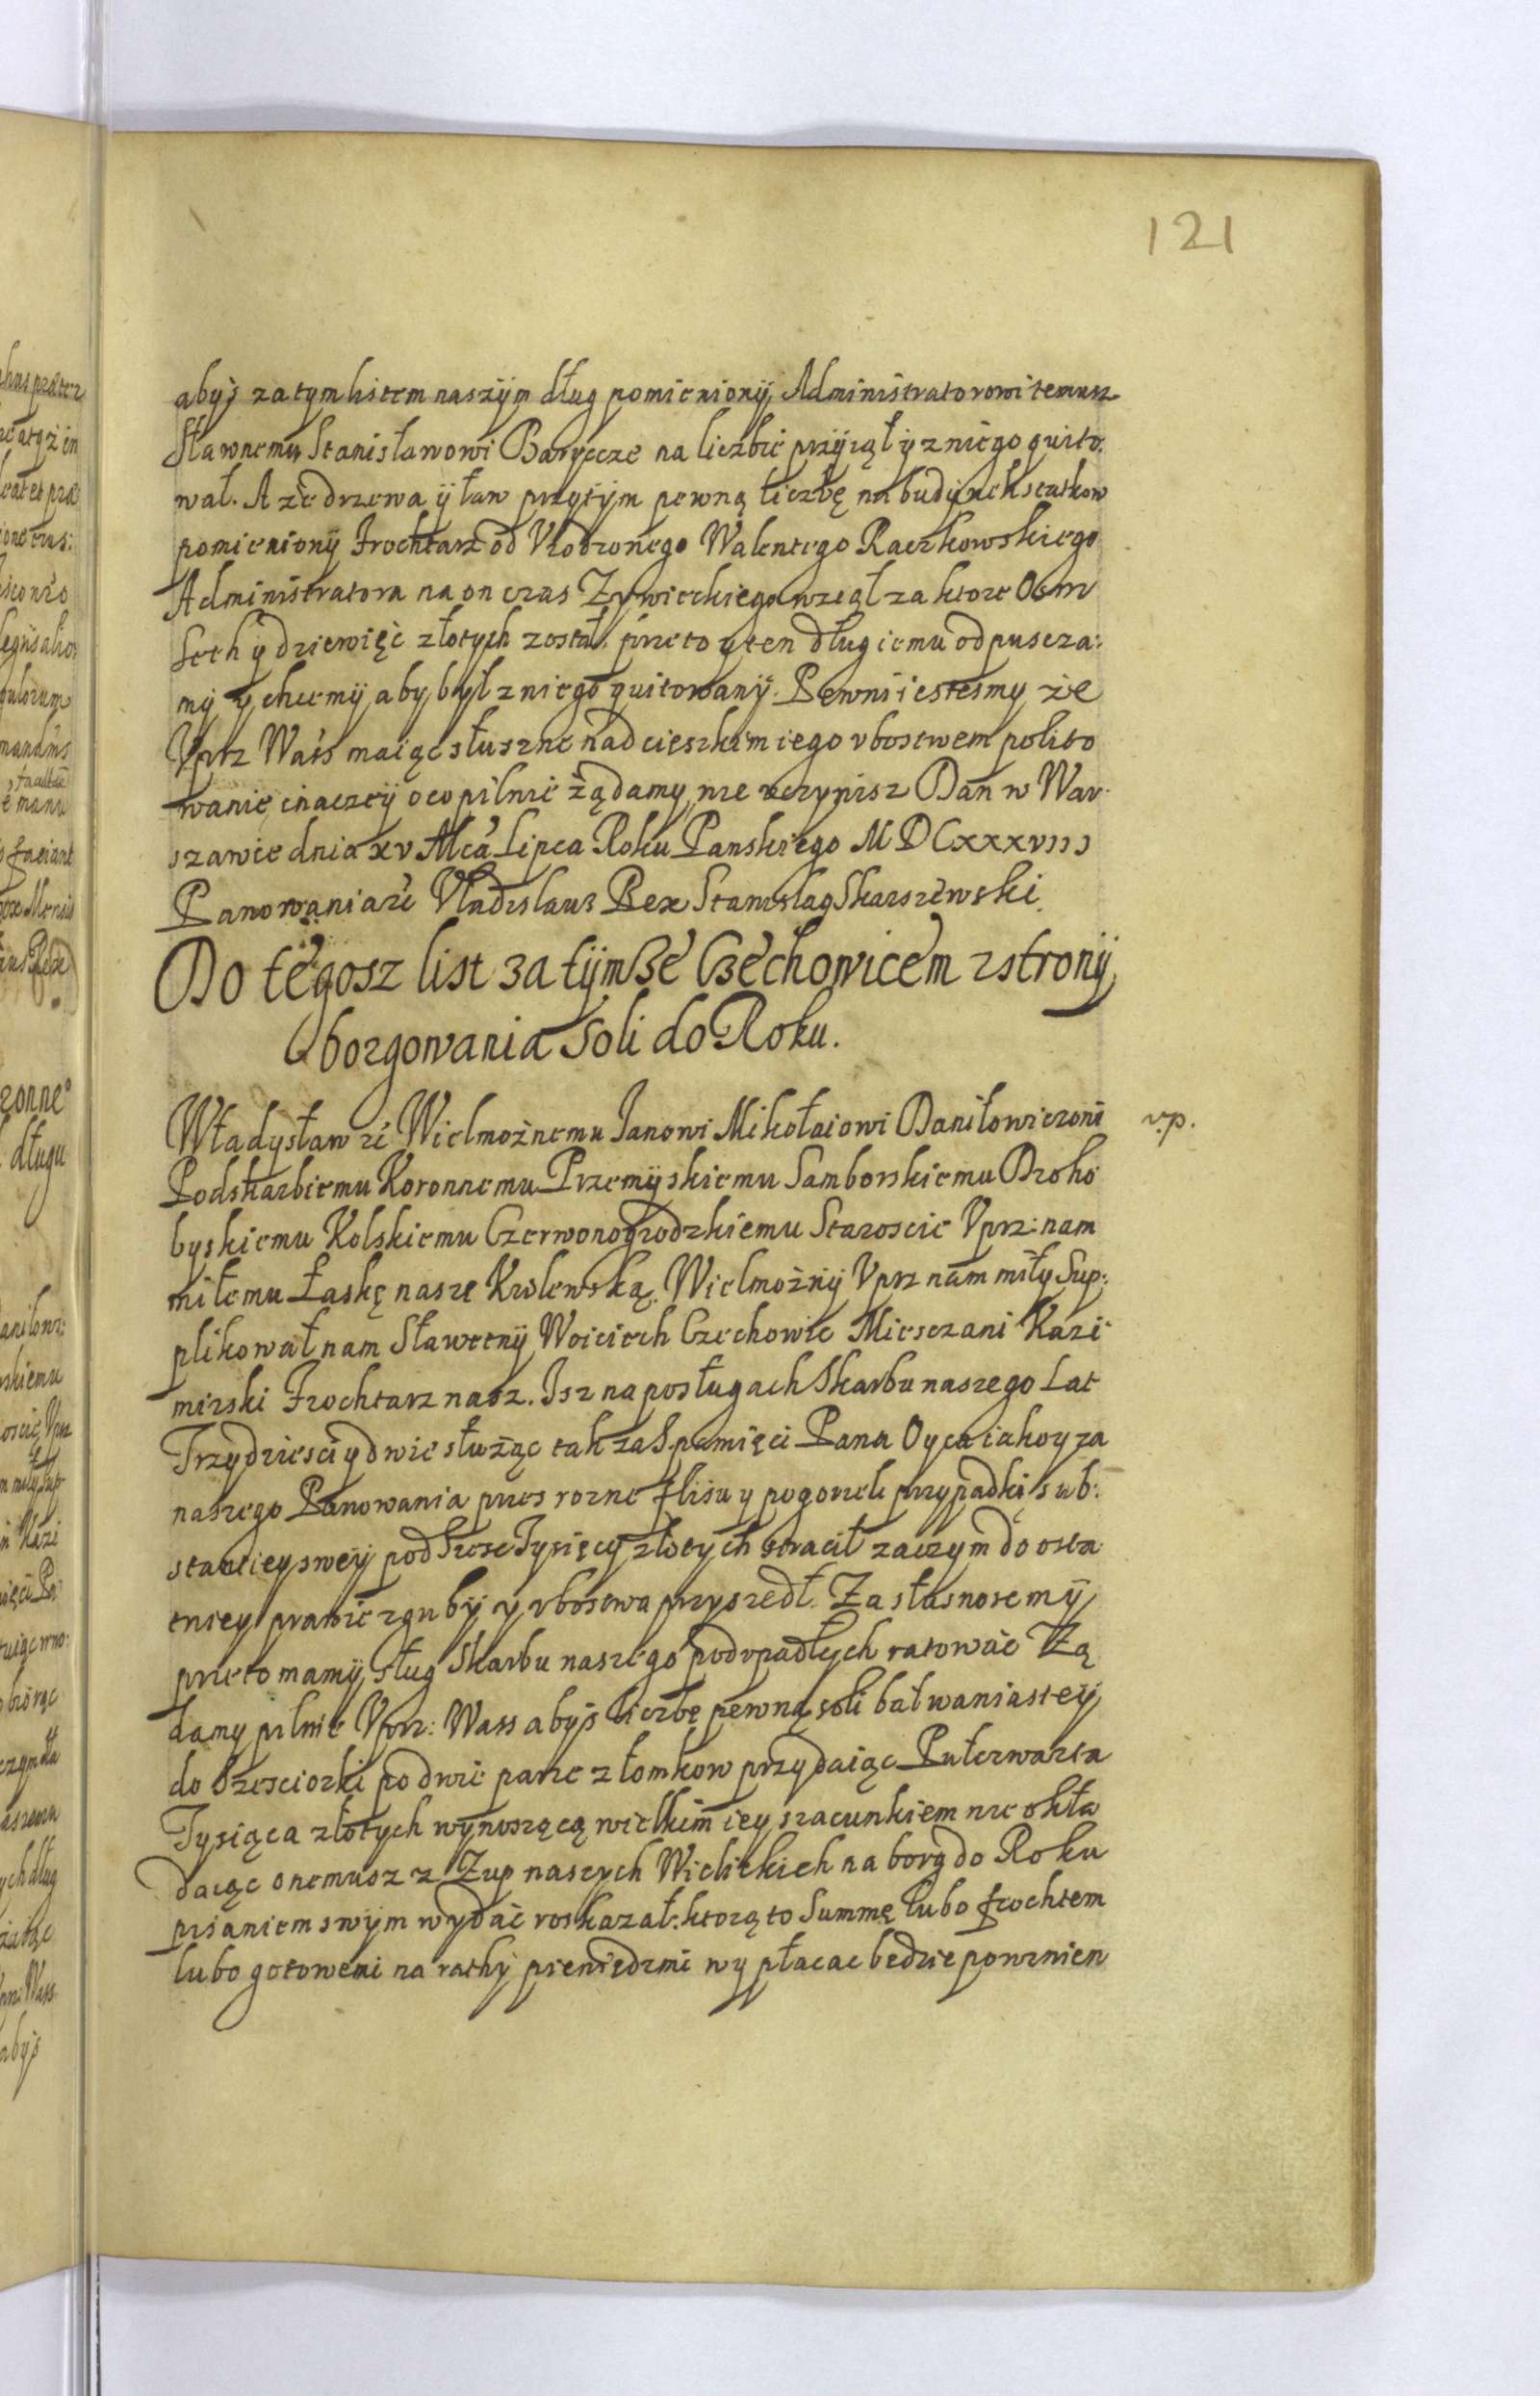 121
abyś za tym listem naszÿm dług pomienionÿ Administratorowi temusz
Sławnemu Stanisławowi Baryczce na liczbie przÿiął ÿ z niego quito:
wał. A że drzewa ÿ ław przytÿm pewną liczbę na budÿnek statkow
pomienionÿ Frochtarz od Vrodzonego Walentego Raczkowskiego
Administratora na on czas Zywieckiego wzeął za ktore Osm
Seth ÿ dziewięć złotych został. przeto y ten dług iemu odpuscza:
mÿ y chcemÿ aby bÿł z niego quitowanÿ. Pewni iestesmy że
Vprz Wasś maiąc słuszne nad cieszkim iego vbostwem polito
wanie inaczeÿ o co pilnie żądamy nie vczynisz Dan w War
szawie dnia xv Mca Lipca Roku Panskiego MDCxxxviii
Panowania etc Vladislaus Rex Stanislaus Skarszewski
Do tegosz list za tÿmże Czechowicem z stronÿ
Oborgowania Soli do Roku.
Władysław etc Wielmożnemu Janowi Mikołaiowi Daniłowiczowi
v.p.
Podskarbiemu Koronnemu Przemÿskiemu Samborskiemu Droho
byskiemu Kolskiemu Czerwonogrodzkiemu Staroscie Vprz: nam
miłemu Łaskę naszę Krolewską. Wielmożnÿ Vprz nam miły Sup:
plikował nam Sławetnÿ Woiciech Czechowic Miesczani Kazi
mirski Frochtarz nasz. Isz na posługach Skarbu naszego Lat
Trzydziesci y dwie służąc tak za S. pamięci Pana Oyca iako y za
naszego Panowania przes rozne flisu y pogorzeli przypadki sub:
stantiey sweÿ pod Szesc Tysięcy złotych stracił zaczym do osta
tniey prawie zgubÿ y vbostwa przyszedł. Za słusnosc mÿ
przeto mamÿ sług Skarbu naszego podupadłych ratować Zą
damy pilnie Vprz: Wass abyś liczbę pewną soli bałwaniasteÿ
do Szesciorki po dwie parze złomkow przydaiąc Pułczwarta
Tysiąca złotych wynoszącą wielkim iey szacunkiem nie okła
daiąc onemusz z Zup naszych Wielickich na borg do Roku
pisaniem swÿm wydać roskazał. ktorą to Summę lubo frochtem
lubo gotowemi na rathÿ pieniędzmi wypłacac bedzie powinien